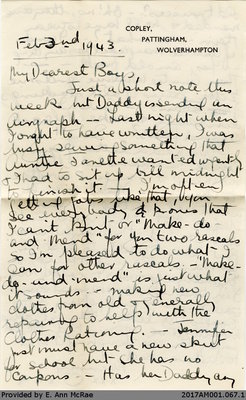 COPLEY,
PATTINGHAM,
WOLVERHAMPTON
Feb 2nd 1943.
My Dearest Boys,
Just a short note this
week but Daddy is sending an
airgraph — Last night when
I ought to have written, I was
busy sewing something that
Auntie Janette wanted urgently
I had to sit up till midnight
to finish it — I'm often
getting jobs like that, by
see everybody knows that
I can't "Make-do-
and Mend" for you two rascals
so I'm pleased to do what I
can for other rascals — "Make-
do-and-mend" is just what
it sounds — making new
clothes from old & generally
repairing to help with the
Clothes Rationing. — Jennifer
just must have a new skirt
for school but she has no
Coupons — Has her Daddy any
Provided by E. Ann McRae
2017AM001.067.1